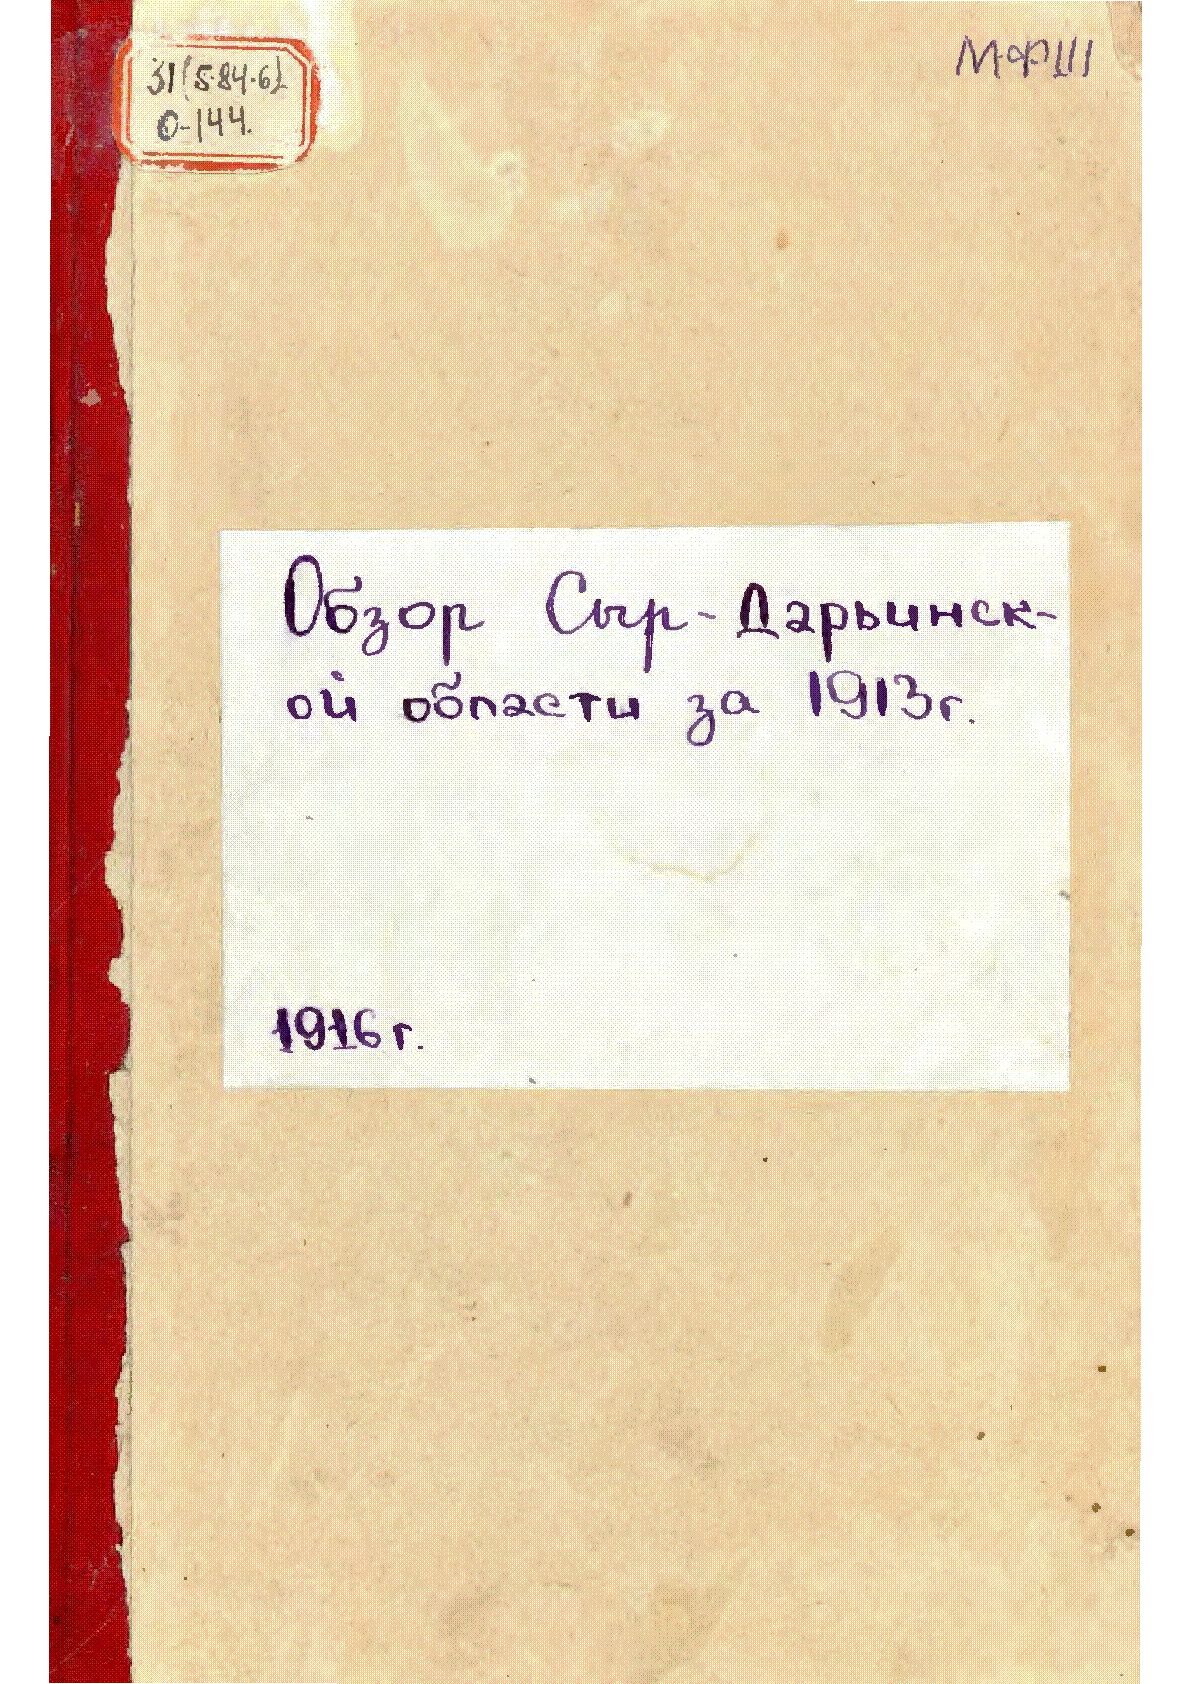 31(584-6)
О-144.
МФШ
Обзор Сыр-Дарьинск-
ой области за 1913г.
1916г.